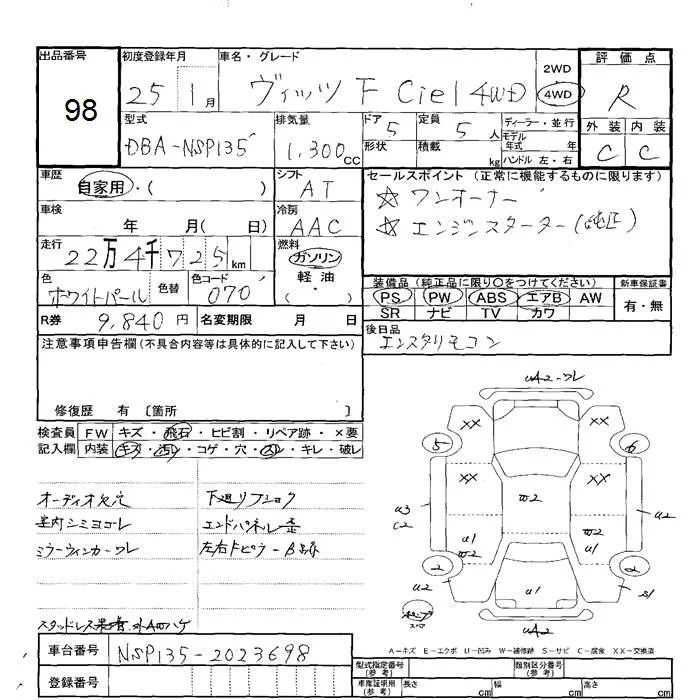 出品番号
98
初度登録年月
25 1月
車名・グレード
ヴィッツ F Ciel 4WD
2WD
4WD
評価点
R
外装 内装
C C
型式
DBA-NSP135
排気量
1,300cc
ドア 5
形状
定員 5人
積載 kg
ディーラー・並行
モデル年式 年
ハンドル 左・右
車歴
自家用・( )
シフト
AT
車検
年 月( 日)
冷房
AAC
走行
22万4千725km
燃料
ガソリン
軽油・
( )
色
ホワイトパール
色替
色コード
070
R券 9,840円
名変期限 月 日
セールスポイント(正常に機能するものに限ります)
☆ ワンオーナー
☆ エンジンスターター(純正)
装備品(純正品に限り○をつけてください)
PS PW ABS エアB AW
SR ナビ TV カワ
新車保証書
有・無
後日品
エンスタリモコン
注意事項申告欄(不具合内容等は具体的に記入して下さい)
修復歴 有 〔箇所 〕
検査員記入欄
FW キズ・飛石・ヒビ割・リペア跡・×要
内装 キズ・汚レ・コゲ・穴・スレ・キレ・破レ
オーディオ欠穴
室内シミヨゴレ
ミラーウィンカーワレ
下廻リフショク
エンドパネル歪
スタッドレス
車台番号 NSP135-2023698
登録番号
uA2-ワレ
XX XX
5 6
XX XX
W2
u3
C2
u2
u1
W2
W2
u1
2 2
u2
u1
S1
uA2
A-キズ E-エクボ U-凹み W-補修跡 S-サビ C-腐食 XX-交換済
型式指定番号(参考)
類別区分番号(参考)
車庫証明用(参考)
長さ cm
幅 cm
高さ cm